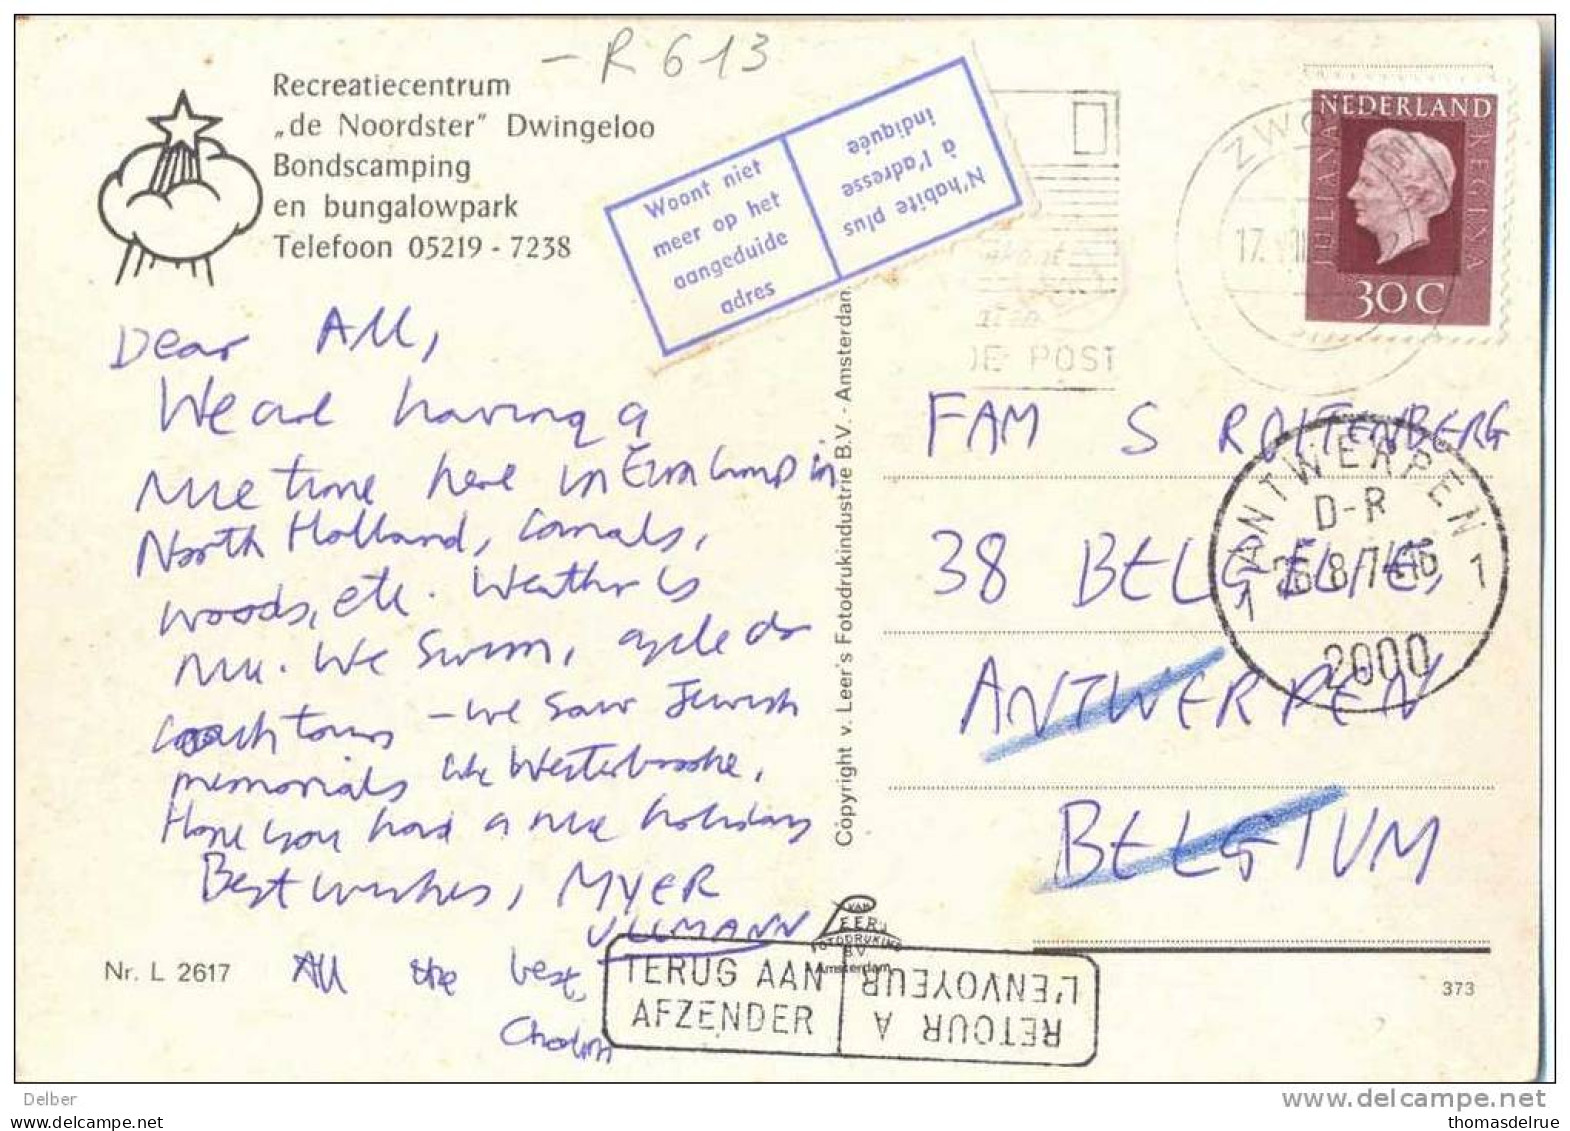 - R 613
Recreatiecentrum
„de Noordster” Dwingeloo
Bondscamping
en bungalowpark
Telefoon 05219 - 7238
Woont niet
meer op het
aangeduide
adres
N'habite plus
à l'adresse
indiquée
NEDERLAND
JULIANA REGINA
30 C
DE POST
Dear All,
We are having a
nice time here in Eurocamp in
North Holland, canals,
woods, etc. Weather is
nice. We swim, cycle do
coach tours - we saw Jewish
memorials like Westerbork.
Hope you had a nice holiday
Best wishes, MYER
ULLMANN
All the best,
FAM S ROTTENBERG
38 BELGIELEI,
ANTWERPEN
BELGIUM
ANTWERPEN
D-R
26-8-74-16
1 1
2000
Copyright v. Leer's Fotodrukindustrie B.V. - Amsterdam.
VAN
LEER's
FOTODRUKIND
B.V.
Amsterdam
TERUG AAN
AFZENDER
RETOUR A
L'ENVOYEUR
Nr. L 2617
373
Delber
www.delcampe.net
thomasdelrue